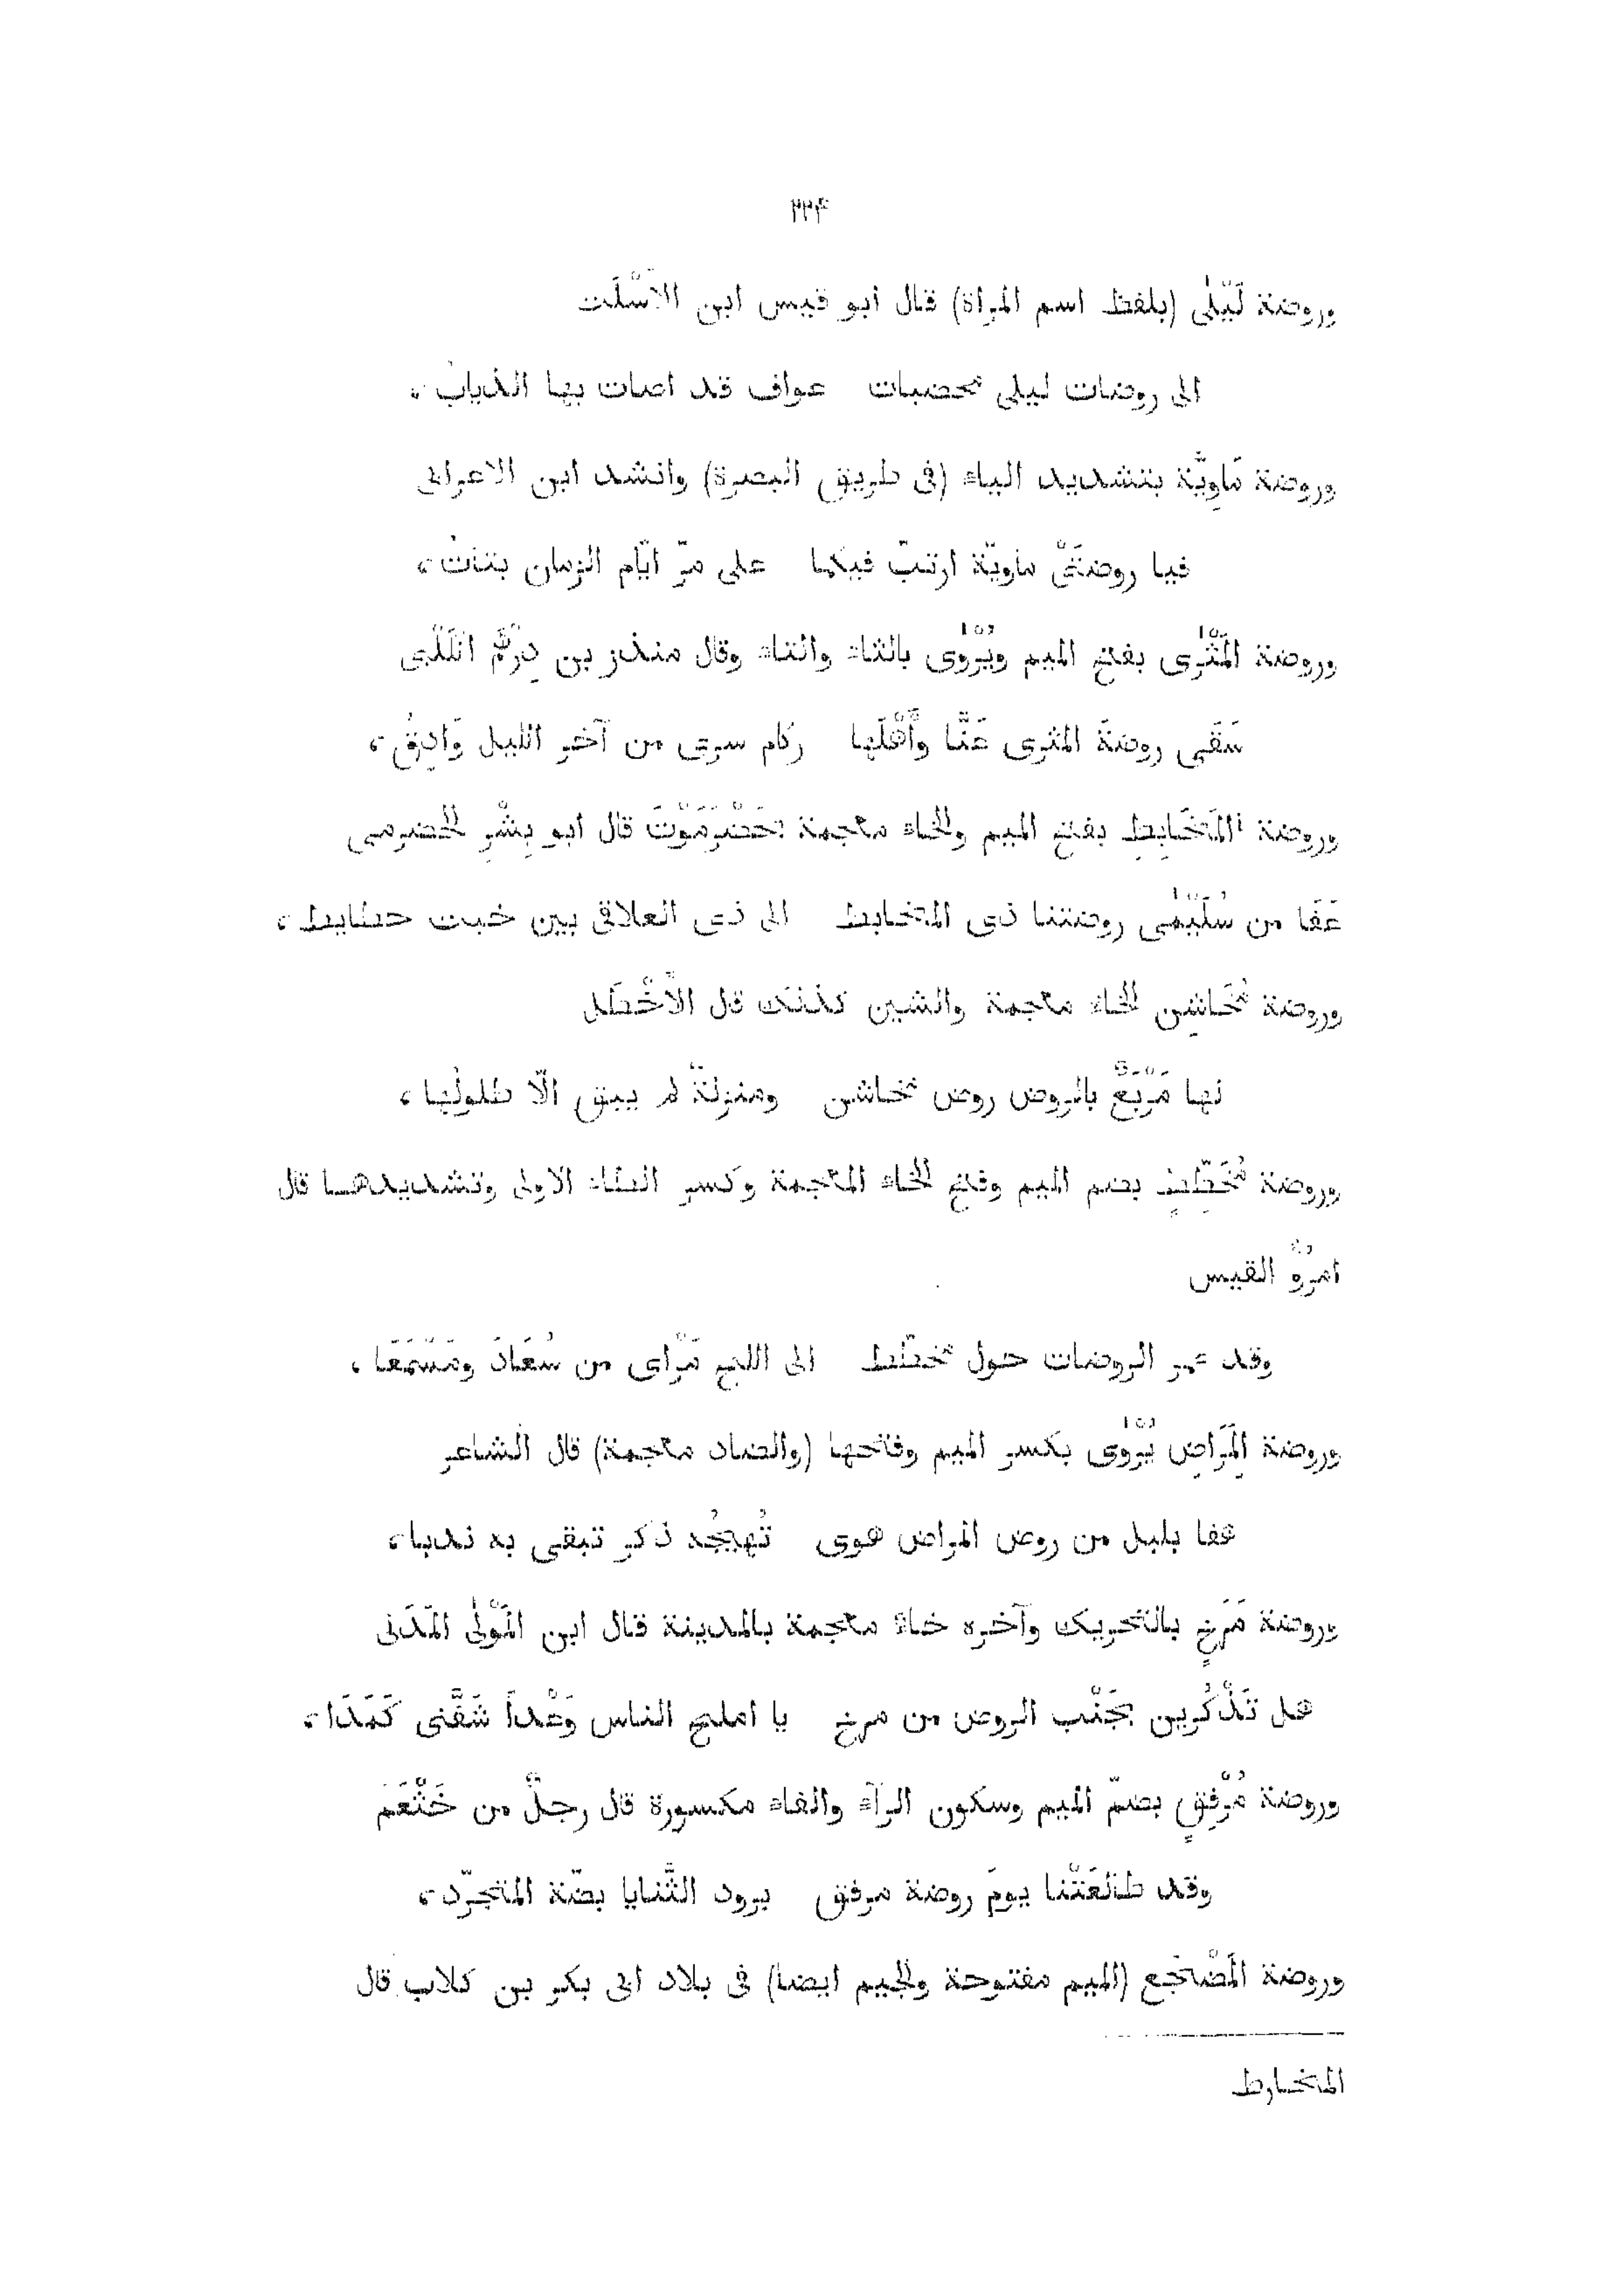 ٢٢۴
وروضة لَيْلَى (بلفظ اسم المراة) قال أبو قيس ابن الأَسْلَت
الى روضات ليلى مخصبات عواف قد اصات بها الذباب ،
وروضة مَاوِيَّة بتشديد الياء (فى طريق البصرة) وانشد ابن الاعرابى
فيا روضتَىْ ماويّة ارتبّ فيكما على مرّ ايّام الزمان بنات ،
وروضة المَثْرَى بفتح الميم ويُرْوَى بالثاء والتاء وقال منذر بن دِرْهَم الكَلْبى
سَقَى روضةَ المثرى عَنَّا وأَهْلَها ركام سرى من آخر الليل وَادِقُ ،
وروضة المَخَابِطِ بفتح الميم والخاء معجمة بحَضْرَمَوْتَ قال أبو بِشْرِ الحضرمى
عَفَا من سُلَيْمَى روضتنا ذى المخابط الى ذى العلاقى بين خبت حطايط ،
وروضة مُخَاشِن الخاء معجمة والشين كذلك قال الأَخْطَل
لها مَرْبَعٌ بالروض روض مخاشن ومنزلةٌ لم يبق الّا طلولُها ،
وروضة مُخَطِّطٍ بضم الميم وفتح الخاء المعجمة وكسر الطاء الاولى وتشديدها قال
امرُؤ القيس
وقد عمر الروضات حول مخطّط الى اللج مَرْأى من سُعَادَ ومَسْمَعَا ،
وروضة المِرَاضِ يُرْوَى بكسر الميم وفتحها (والضاد معجمة) قال الشاعر
هفا بلبل من روض المراض هوى تُهيجُه ذكر تبقى به ندبا ،
وروضة مَرَخٍ بالتحريك وآخره خاء معجمة بالمدينة قال ابن المَوْلَى المَدَنى
هل تَذْكُرين بجَنْب الروض من مرخ يا املح الناس وَعْداً شَفَّنى كَمَدَا ،
وروضة مُرْفِقٍ بضمّ الميم وسكون الراء والفاء مكسورة قال رجلٌ من خَثْعَم
وقد طالَعَتْنا يومَ روضة مرفق برود الثَّنايا بضّة المتجرّد ،
وروضة المَضْجَع (الميم مفتوحة والجيم ايضا) فى بلاد ابى بكر بن كلاب قال
المخارط